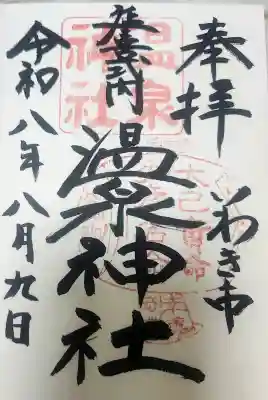 奉拝
いわき市
延喜式内
温泉神社
令和八年八月九日
温泉
神社